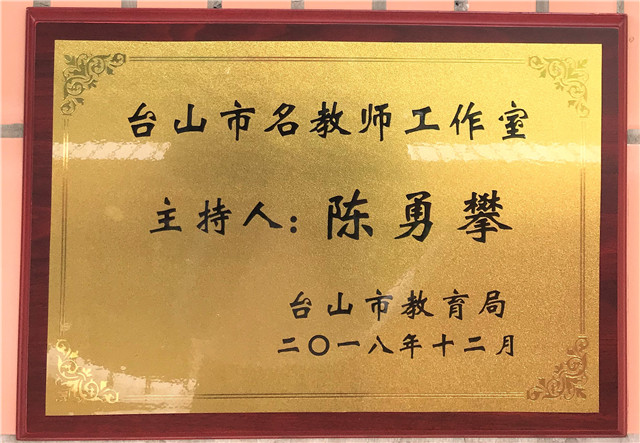 台山市名教师工作室
主持人：陈勇攀
台山市教育局
二〇一八年十二月